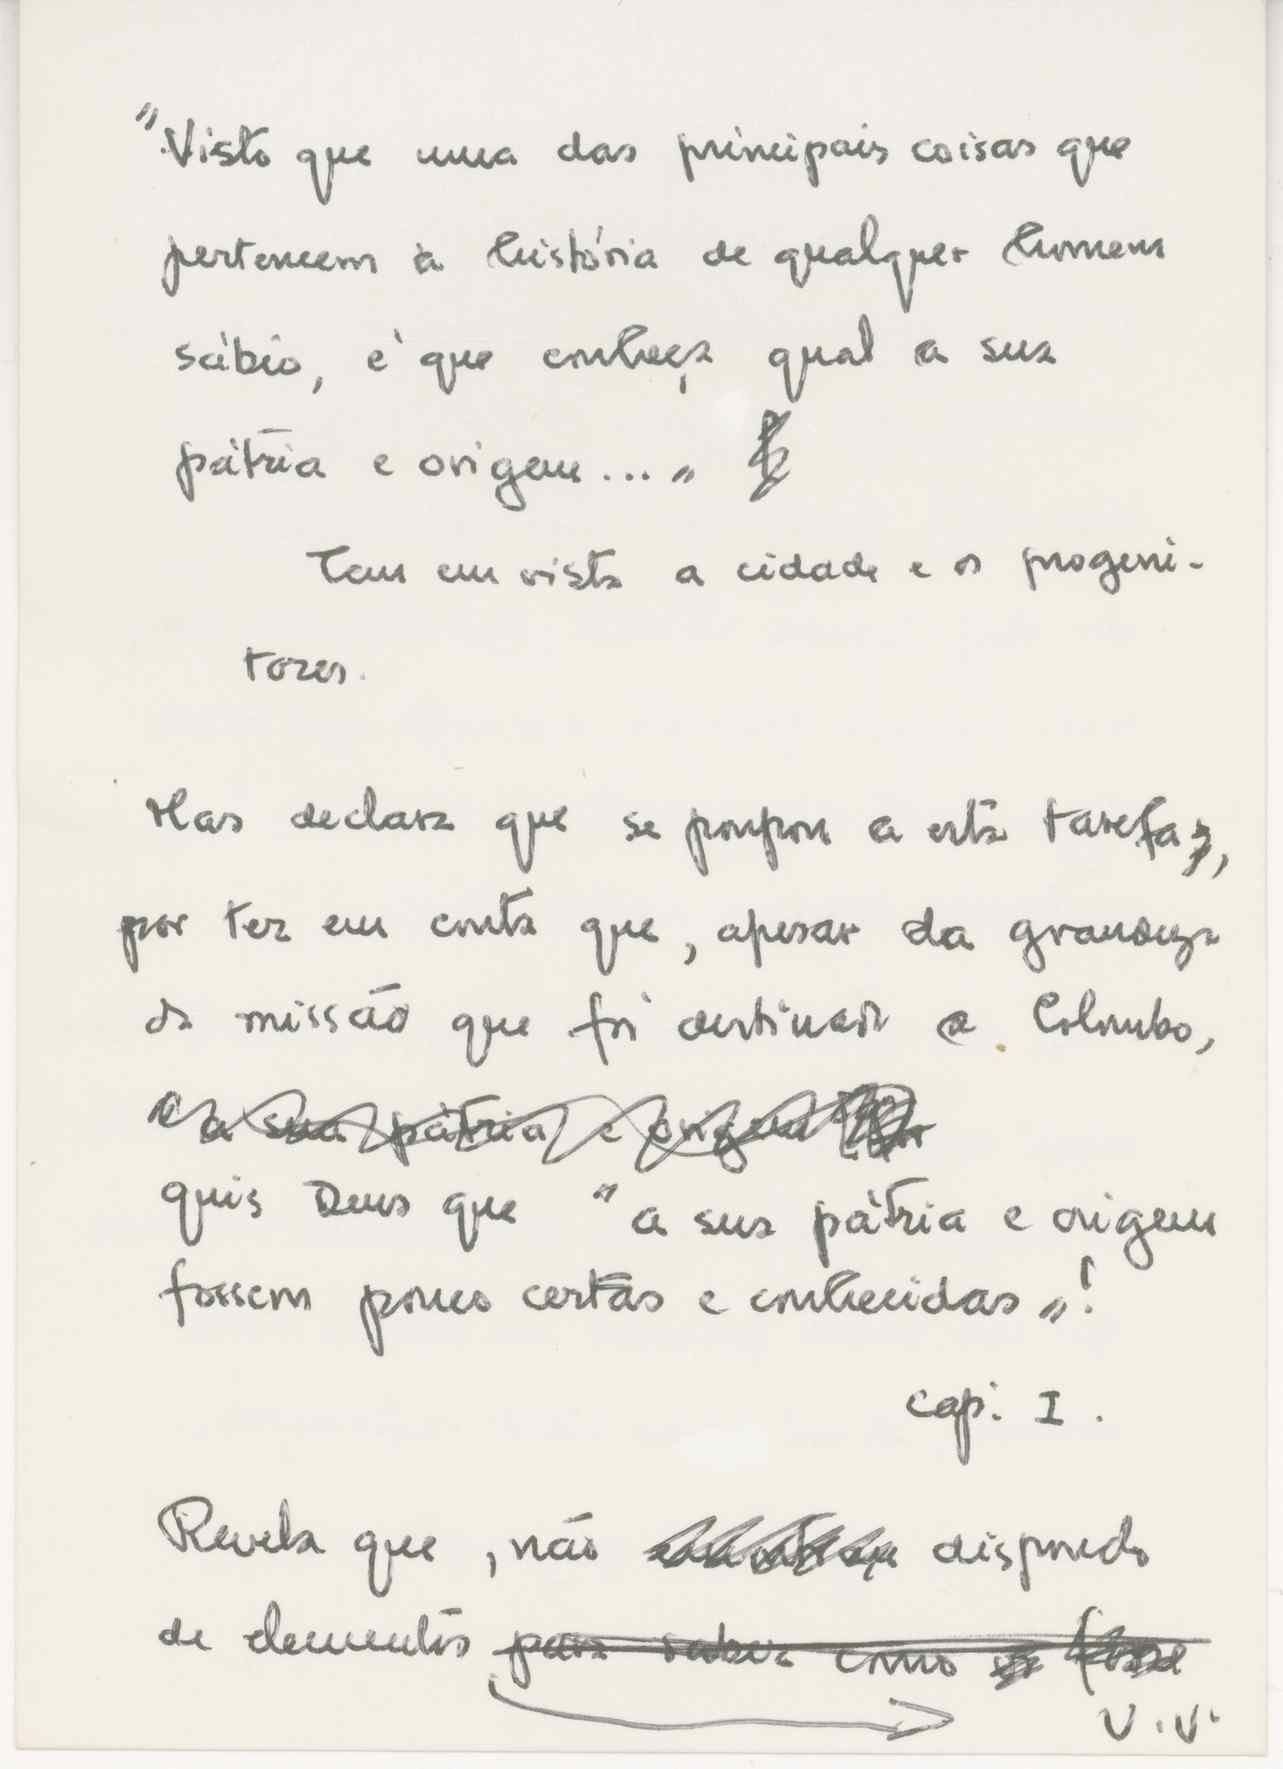 "Visto que uma das principais coisas que
pertencem à história de qualquer homem
sábio, é que conheça qual a sua
pátria e origem..."
Tem em vista a cidade e os progeni-
tores.
Mas declara que se poupou a esta tarefa,
por ter em conta que, apesar da grandeza
da missão que foi destinada a Colombo,
e a sua pátria e origem
quis Deus que "a sua pátria e origem
fossem pouco certas e conhecidas"!
cap. I.
Revela que, não dispondo
de elementos para saber como se fosse
V.V.